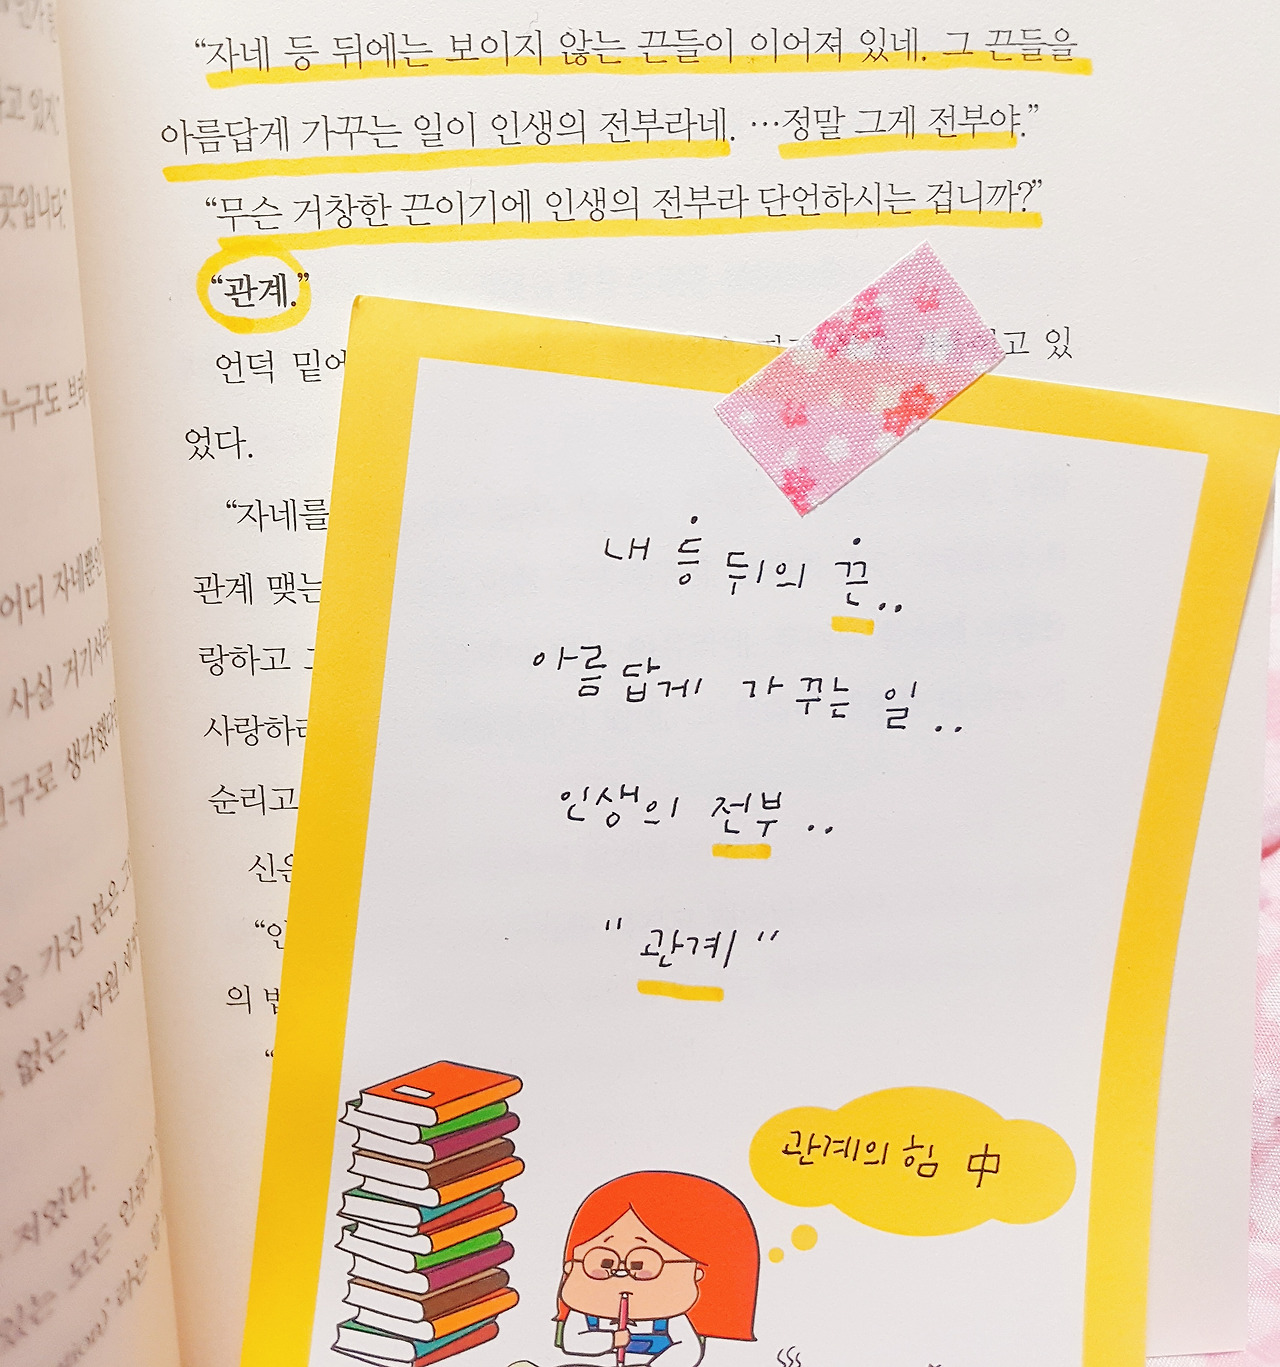 “자네 등 뒤에는 보이지 않는 끈들이 이어져 있네. 그 끈들을
아름답게 가꾸는 일이 인생의 전부라네. …정말 그게 전부야.”
“무슨 거창한 끈이기에 인생의 전부라 단언하시는 겁니까?”
“관계.”
언덕 밑에
고 있
었다.
“자네를
관계 맺는
랑하고
사랑하
순리고
신은
의
내 등 뒤의 끈..
아름답게 가꾸는 일..
인생의 전부..
"관계"
관계의 힘 中
고 있지.”
곳입니다.”
누구도
어디 자네뿐인
사실 거기서부
친구로 생각했다
을 가진 분은
없는 4차원
지었다.
있는 모든 인류
라는